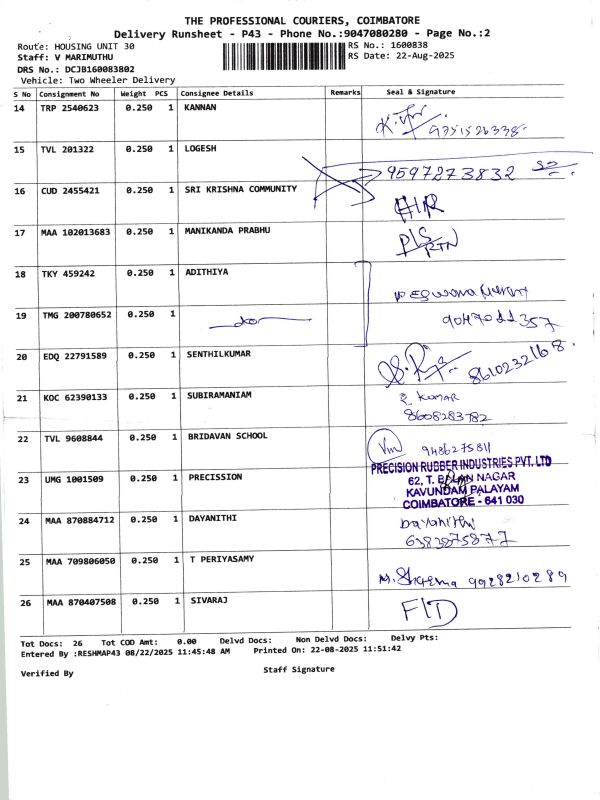 THE PROFESSIONAL COURIERS, COIMBATORE
Delivery Runsheet - P43 - Phone No.:9047080280 - Page No.:2
Route: HOUSING UNIT 30
RS No.: 1600838
Staff: V MARIMUTHU
RS Date: 22-Aug-2025
DRS No.: DCJB160083802
Vehicle: Two Wheeler Delivery
S No Consignment No Weight PCS Consignee Details Remarks Seal & Signature
14 TRP 2540623 0.250 1 KANNAN
9751526338
15 TVL 201322 0.250 1 LOGESH
9597273832
16 CUD 2455421 0.250 1 SRI KRISHNA COMMUNITY
17 MAA 102013683 0.250 1 MANIKANDA PRABHU
P/S
RTN
18 TKY 459242 0.250 1 ADITHIYA
19 TMG 200780652 0.250 1 -do-
20 EDQ 22791589 0.250 1 SENTHILKUMAR
8610232168
21 KOC 62390133 0.250 1 SUBIRAMANIAM
KUMAR
8608283782
22 TVL 9608844 0.250 1 BRIDAVAN SCHOOL
9486275811
23 UMG 1001509 0.250 1 PRECISSION
PRECISION RUBBER INDUSTRIES PVT. LTD
62, T. BALAN NAGAR
KAVUNDAM PALAYAM
COIMBATORE - 641 030
24 MAA 870884712 0.250 1 DAYANITHI
Dayanithi
6383875877
25 MAA 709806050 0.250 1 T PERIYASAMY
9928210289
26 MAA 870407508 0.250 1 SIVARAJ
Tot Docs: 26 Tot COD Amt: 0.00 Delvd Docs: Non Delvd Docs: Delvy Pts:
Entered By :RESHMAP43 08/22/2025 11:45:48 AM Printed On: 22-08-2025 11:51:42
Verified By
Staff Signature